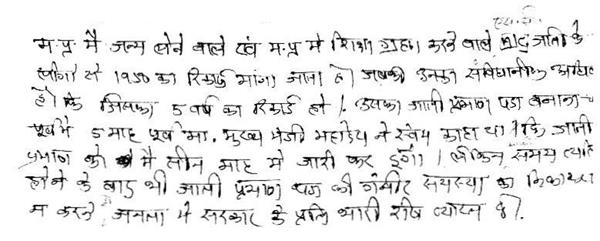 एस.सी.
म.प्र. मै जन्म लेने वाले एवं म.प्र. मे शिक्षा ग्रहण करने वाले जाती के
लोगों से 1950 का रिकार्ड मांगा जाता है। जबकी उनका संवैधानीक
है। कि जिसका 5 वर्ष का रिकार्ड हो। उसका जाती प्रमाण पत्र बनाना
पूर्व मै 5 माह पूर्व मा. मुख्य मंत्री महोदय ने स्वंय कहा था। कि जाती
प्रमाण को मै तीन माह मे जारी कर दुंगा। लेकिन समय
होने के बाद भी जाती प्रमाण पत्र की गंभीर समस्या का
न करने जनता मे सरकार के प्रति भारी रोष व्याप्त है।